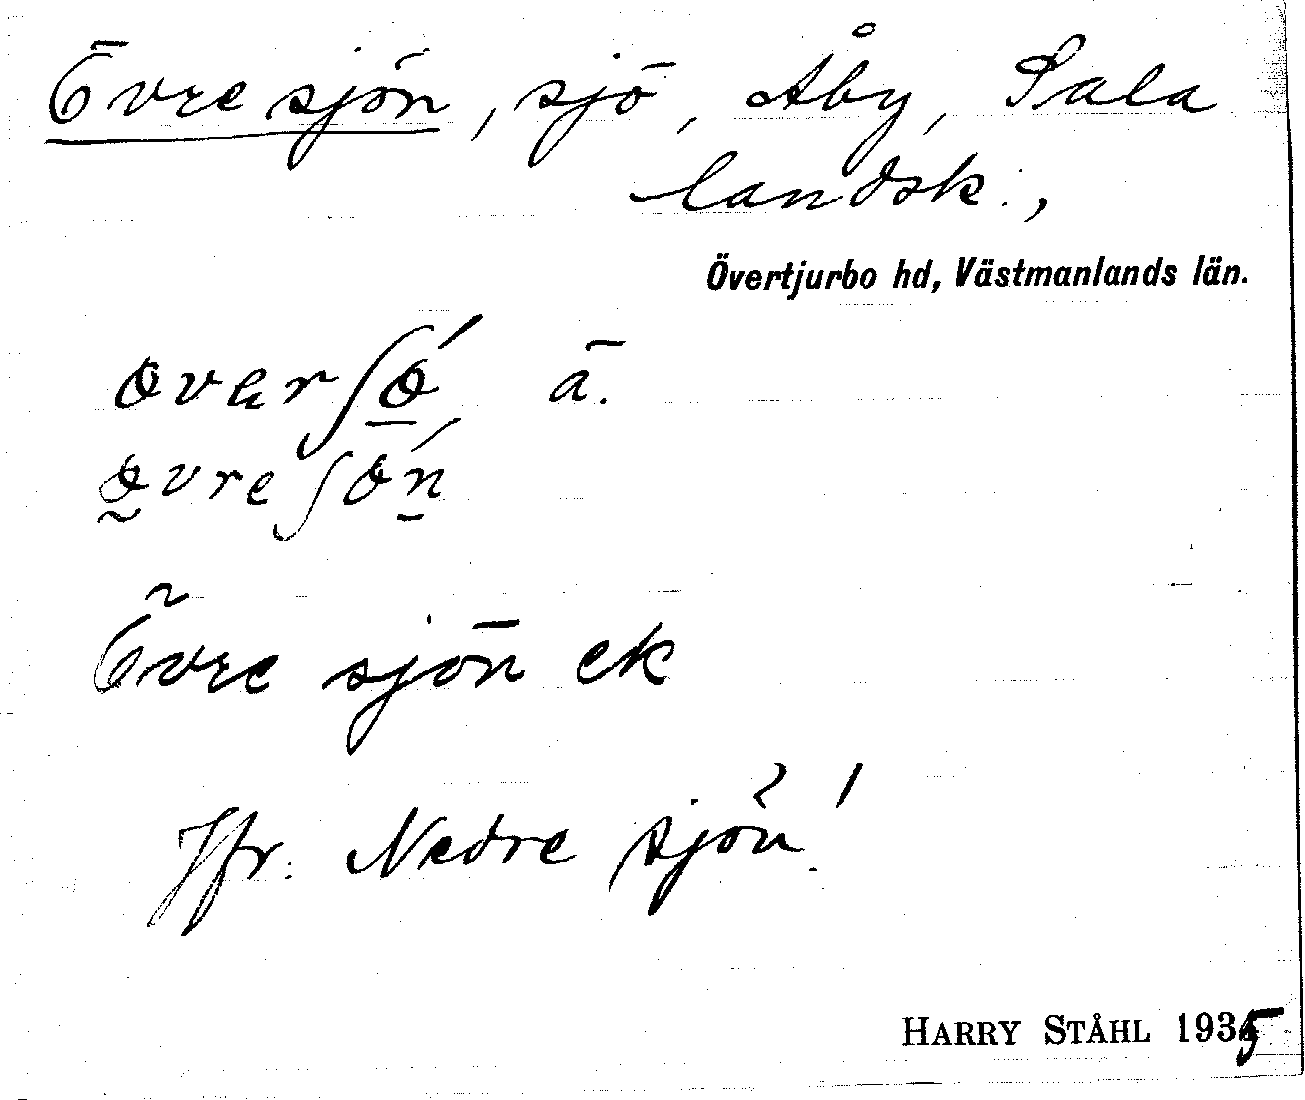 Övre sjön, sjö, Åby, Sala
landsk.,
Övertjurbo hd, Västmanlands län.
ä.
Övre sjön ek
Jfr. Nedre sjön!
HARRY STÅHL 1935